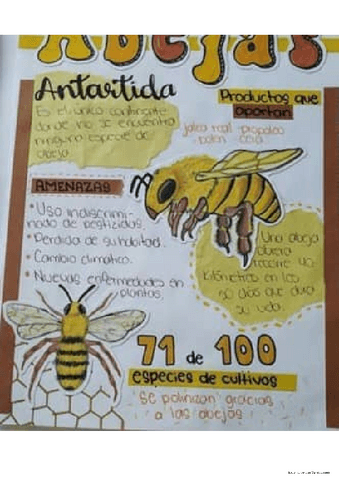 Abejas
Antartida
Es el unico continente
donde no se encuentra
ninguna especie de
abeja
Productos que
aportan
jalea real -propoleo
-polen -cera
AMENAZAS
* Uso indiscrimi-
nado de pestizidas.
* Perdida de su habitad.
* Cambio climatico.
* Nuevas enfermedades en
plantas.
Una abeja
obrera
recorre
kilometros en los
dias que dura
su vida.
71 de 100
especies de cultivos
se polinizan gracias
a las abejas